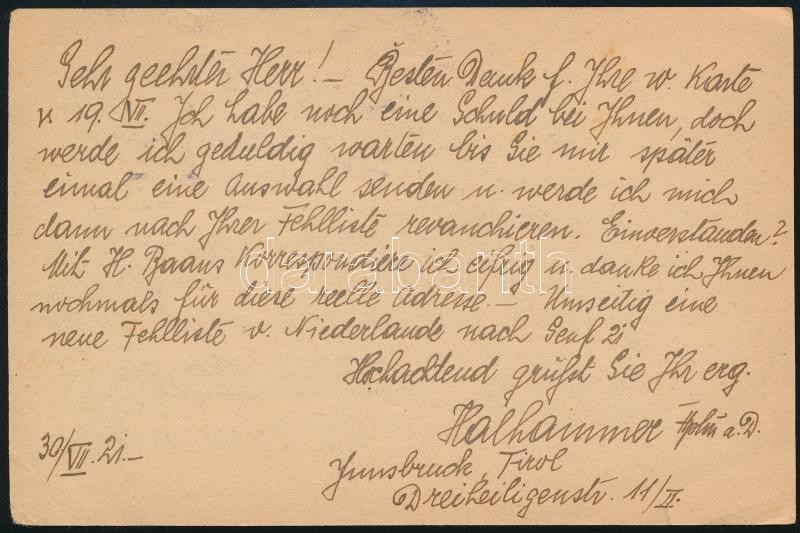 Sehr geehrter Herr! – Besten Dank f. Ihre w. Karte
v. 19. VII. Ich habe noch eine Schuld bei Ihnen, doch
werde ich geduldig warten bis Sie mir später
eimal eine Auswahl senden u. werde ich mich
dann nach Ihrer Fehlliste revanchieren. Einverstanden?
Mit H. Baans Korrespondiere ich eifrig u. danke ich Ihnen
nochmals für diese reelle Adresse. – Umseitig eine
neue Fehlliste v. Niederlande nach Senf 21
Hochachtend grüßt Sie Ihr erg.
Halhammer a. D.
30/VII. 21. –
Innsbruck, Tirol
Dreiheiligenstr. 11/II.
darabanth